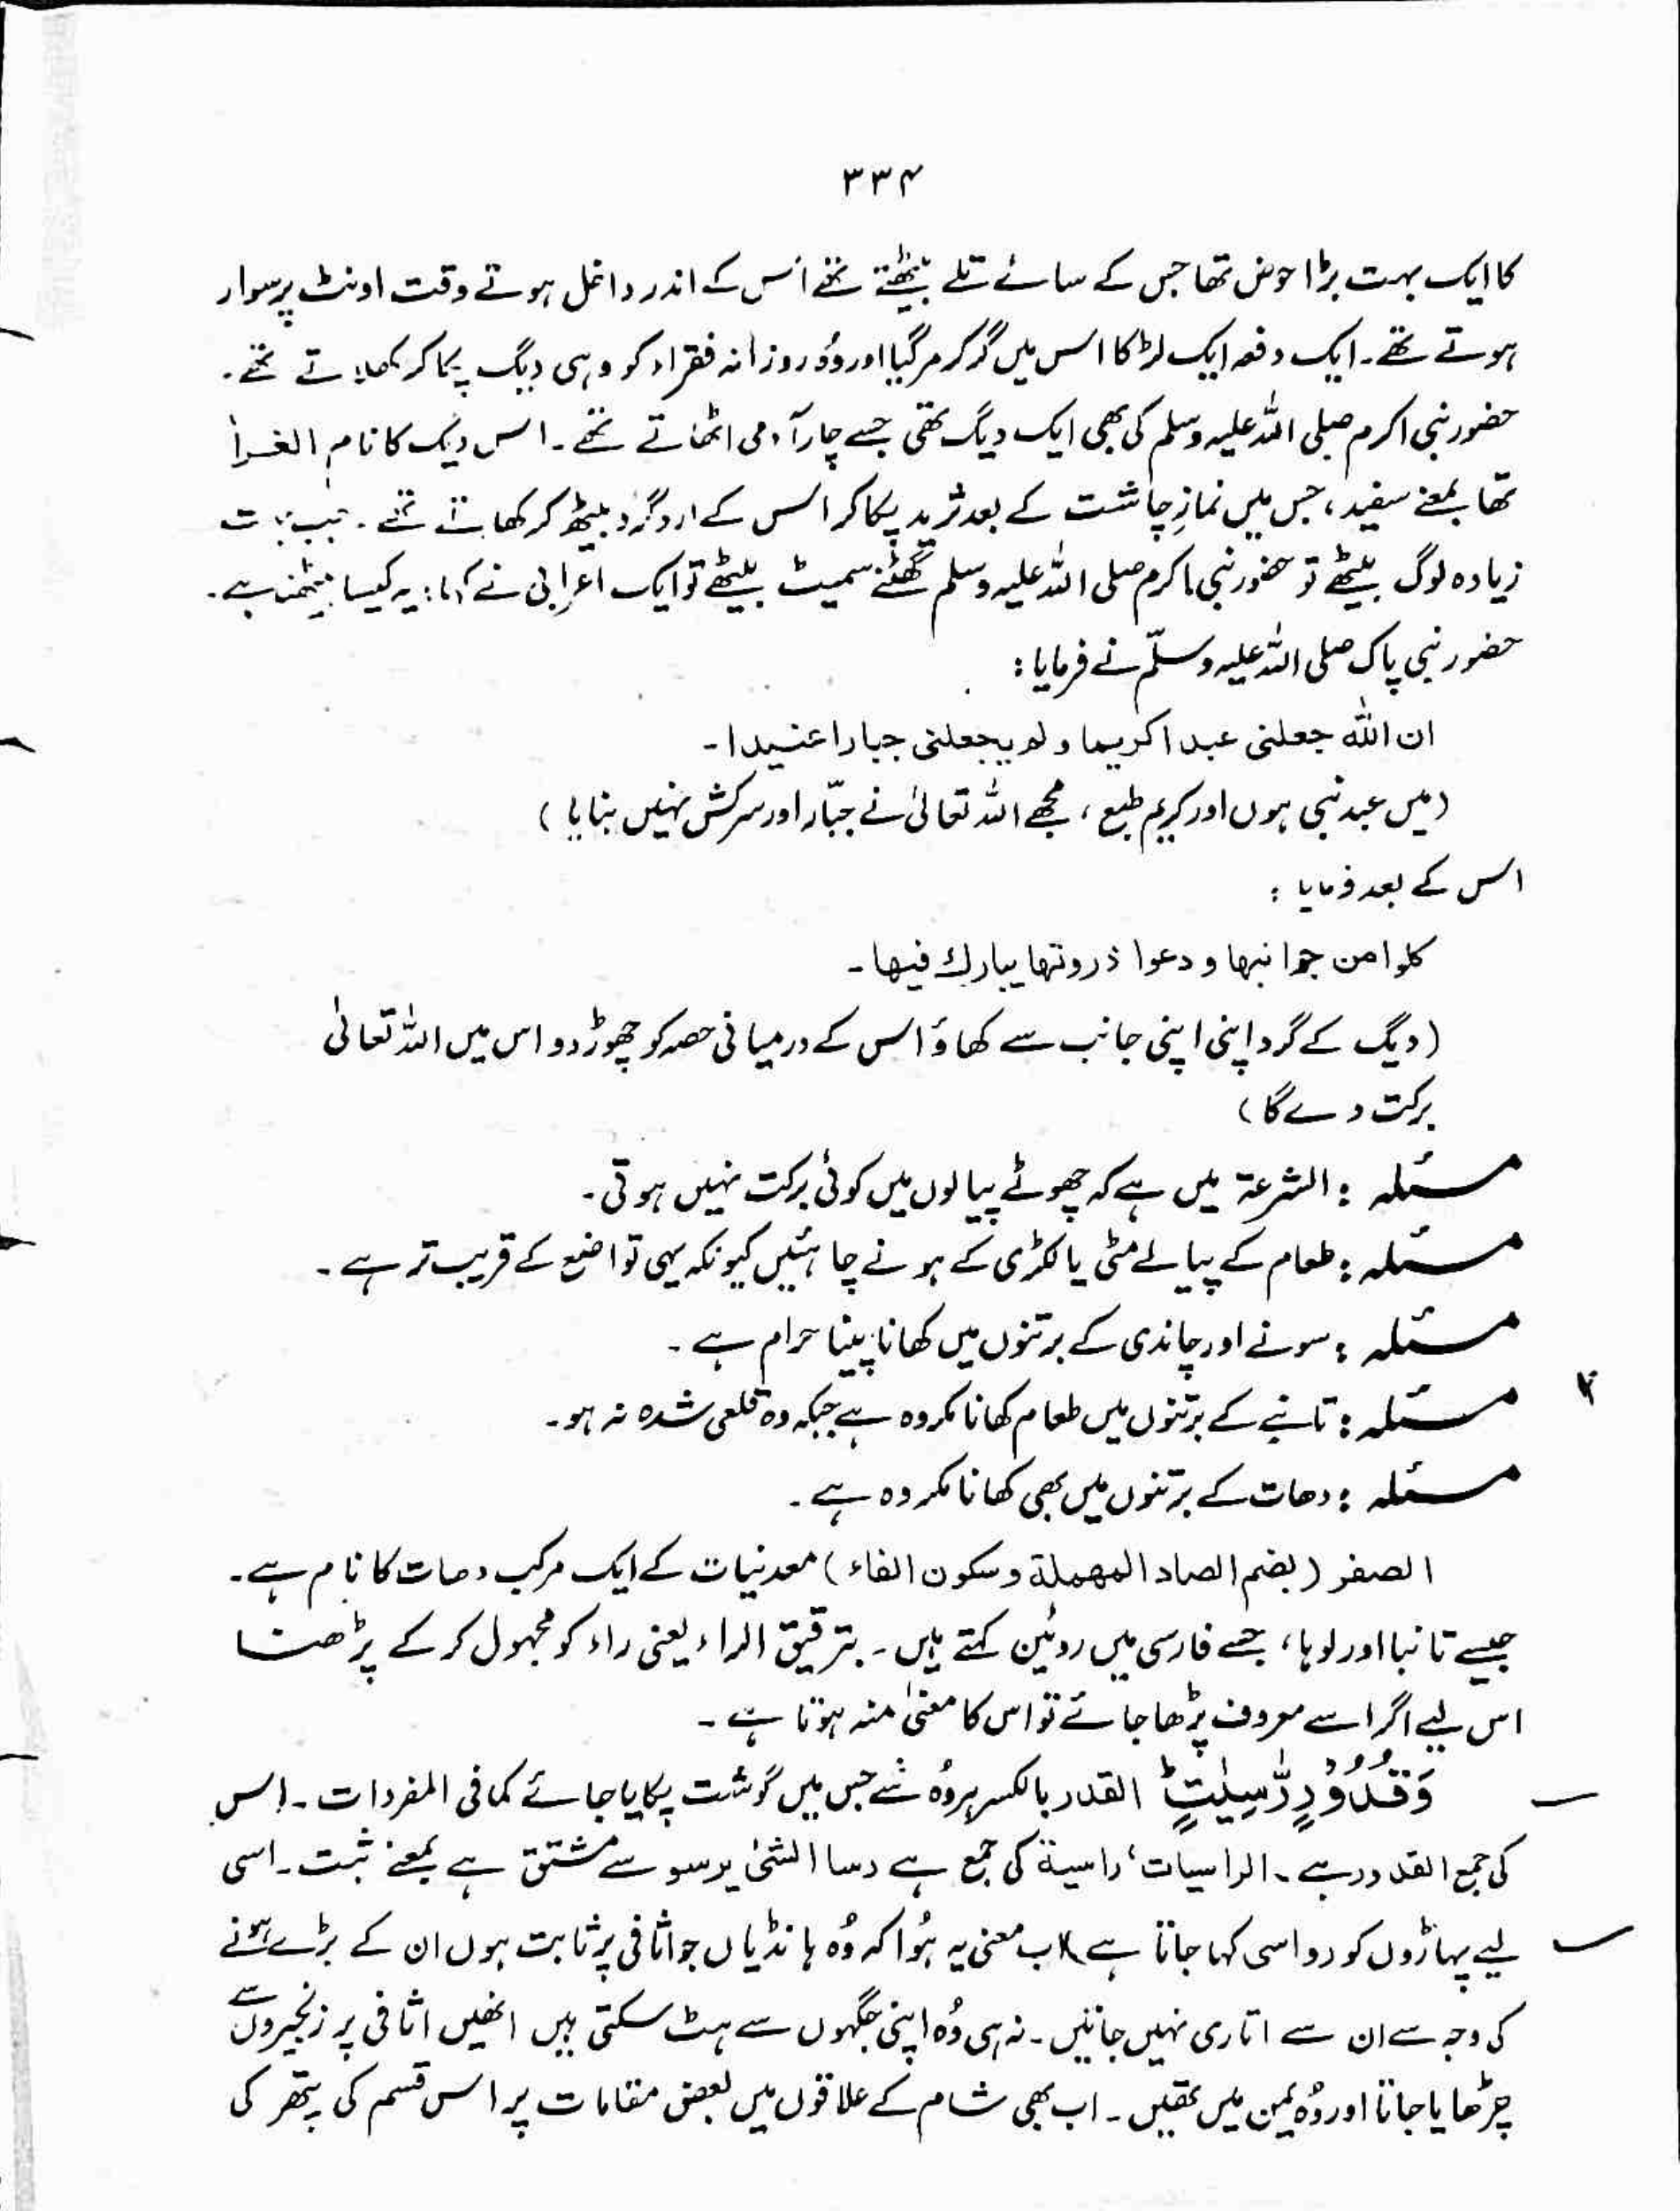 ۳۳۴
کا ایک بہت بڑا حوض تھا جس کے سائے تلے بیٹھتے تھے اُس کے اندر داخل ہوتے وقت اونٹ پر سوار
ہوتے تھے۔ ایک دفعہ ایک لڑکا اس میں گر کر مر گیا اور وُہ روزانہ فقراء کو وہی دیگ پکا کر کھلاتے تھے۔
حضور نبی اکرم صلی اللہ علیہ وسلم کی بھی ایک دیگ تھی جسے چار آدمی اٹھاتے تھے۔ اس دیگ کا نام الغرا
تھا بمعنے سفید، جس میں نمازِ چاشت کے بعد ثرید پکا کر اس کے اردگرد بیٹھ کر کھاتے تھے۔ جب بہت
زیادہ لوگ بیٹھے تو حضور نبی اکرم صلی اللہ علیہ وسلم گھٹنے سمیٹ بیٹھے تو ایک اعرابی نے کہا: یہ کیسا بیٹھنا ہے۔
حضور نبی پاک صلی اللہ علیہ وسلّم نے فرمایا:
ان اللہ جعلنی عبدا کریما ولم یجعلنی جبارا عنیدا۔
(میں عبد نبی ہوں اور کریم طبع، مجھے اللہ تعالیٰ نے جبّار اور سرکش نہیں بنایا)
اس کے بعد فرمایا:
کلوا من جوانبھا و دعوا ذروتھا یبارك فیھا۔
(دیگ کے گرد اپنی اپنی جانب سے کھاؤ اس کے درمیانی حصہ کو چھوڑ دو اس میں اللہ تعالیٰ
برکت دے گا)
مسئلہ: الشرعۃ میں ہے کہ چھوٹے پیالوں میں کوئی برکت نہیں ہوتی۔
مسئلہ: طعام کے پیالے مٹی یا لکڑی کے ہونے چاہئیں کیونکہ یہی تواضع کے قریب تر ہے۔
مسئلہ: سونے اور چاندی کے برتنوں میں کھانا پینا حرام ہے۔
مسئلہ: تانبے کے برتنوں میں طعام کھانا مکروہ ہے جبکہ وہ قلعی شدہ نہ ہو۔
مسئلہ: دھات کے برتنوں میں بھی کھانا مکروہ ہے۔
الصفر (بضم الصاد المھملۃ و سکون الفاء) معدنیات کے ایک مرکب دھات کا نام ہے۔
جیسے تانبا اور لوہا، جسے فارسی میں روئین کہتے ہیں۔ بترقیق الراء یعنی راء کو مجہول کر کے پڑھنا
اس لیے اگر اسے معروف پڑھا جائے تو اس کا معنیٰ منہ ہوتا ہے۔
وَقُدُوْرٍ رّٰسِیٰتٍ ؕ القدر بالکسر ہر وُہ شے جس میں گوشت پکایا جائے کما فی المفردات۔ اس
کی جمع القدور ہے۔ الراسیات، راسیۃ کی جمع ہے رسا الشیٔ یرسو سے مشتق ہے بمعنے ثبت۔ اسی
لیے پہاڑوں کو رواسی کہا جاتا ہے اب معنیٰ یہ ہُوا کہ وُہ ہانڈیاں جو اثافی پر ثابت ہوں ان کے بڑے ہونے
کی وجہ سے ان سے اتاری نہیں جاتیں۔ نہ ہی وُہ اپنی جگہوں سے ہٹ سکتی ہیں انھیں اثافی پر زنجیروں سے
چڑھایا جاتا اور وُہ یمن میں تھیں۔ اب بھی شام کے علاقوں میں بعض مقامات پر اس قسم کی پتھر کی